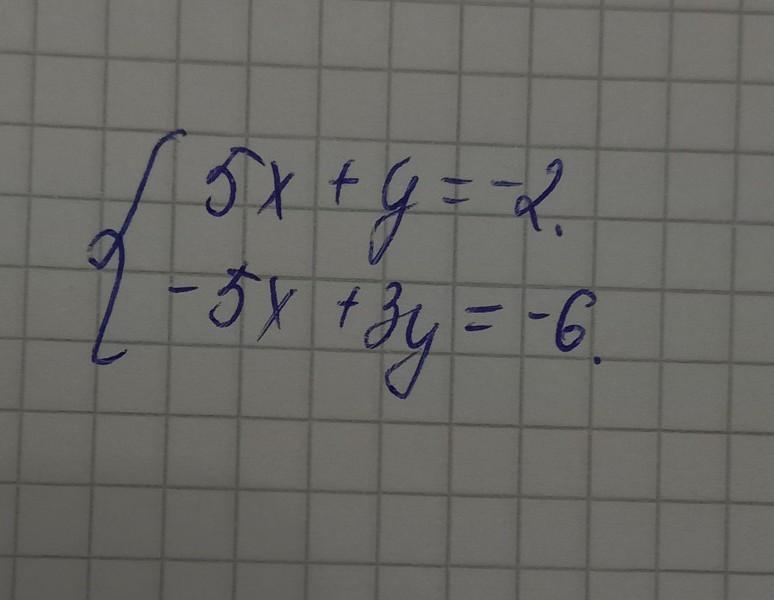 5x + y = -2.
-5x + 3y = -6.